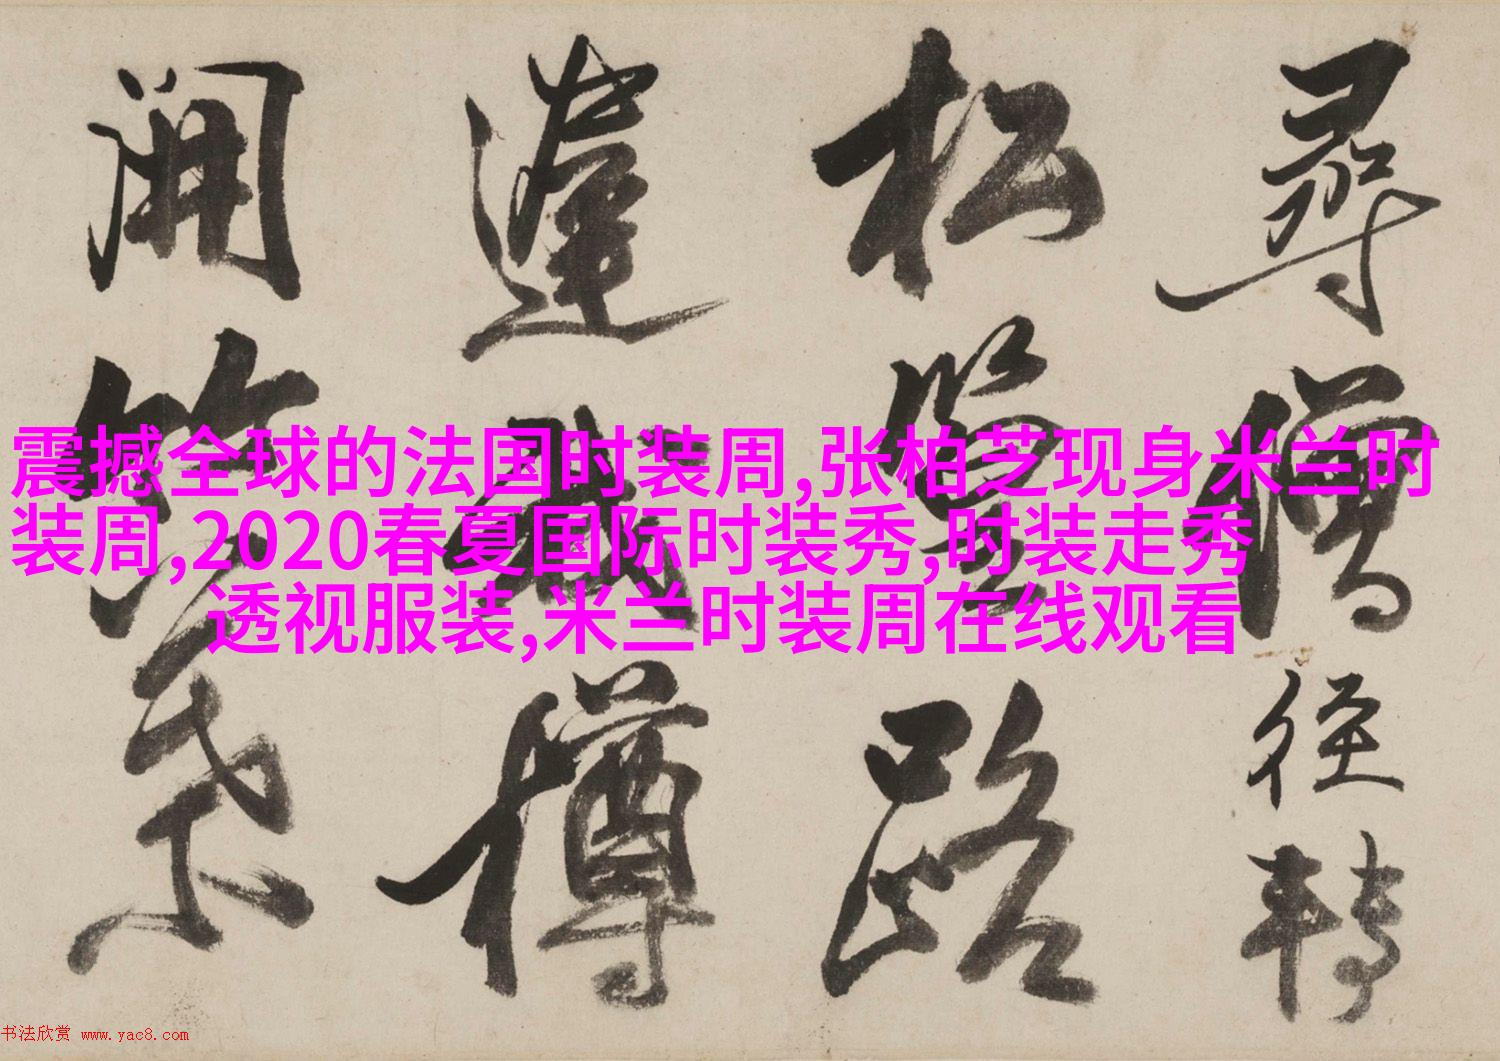 尋僧径轉
松路
樽
開
震撼全球的法国时装周,张柏芝现身米兰时
装周,2020春夏国际时装秀,时装走秀
透视服装,米兰时装周在线观看
书法欣赏 www.yac8.com